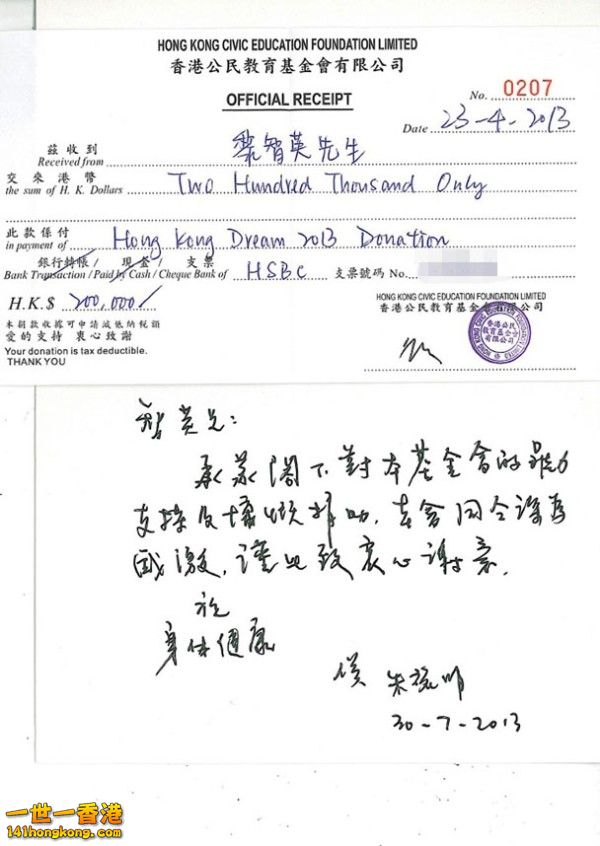 HONG KONG CIVIC EDUCATION FOUNDATION LIMITED
香港公民教育基金會有限公司
OFFICIAL RECEIPT
No. 0207
Date 23-4-2013
茲收到 黎智英先生
Received from
交來港幣
the sum of H. K. Dollars Two Hundred Thousand Only
此款係付
in payment of Hong Kong Dream 2013 Donation
銀行轉帳 / 現金 / 支票
Bank Transaction / Paid by Cash / Cheque Bank of HSBC 支票號碼 No.
H.K.$ 200,000/
HONG KONG CIVIC EDUCATION FOUNDATION LIMITED
香港公民教育基金會有限公司
本捐款收據可申請減低納稅額
愛的支持 衷心致謝
Your donation is tax deductible.
THANK YOU
香港公民
教育基金會
有限公司
智英兄:
承蒙閣下對本基金會的鼎力
支持及慷慨捐助，本會同仝深為
感激，謹此致衷心謝意。
祝
身体健康
朱耀明
30-7-2013
一世一香港
141hongkong.com